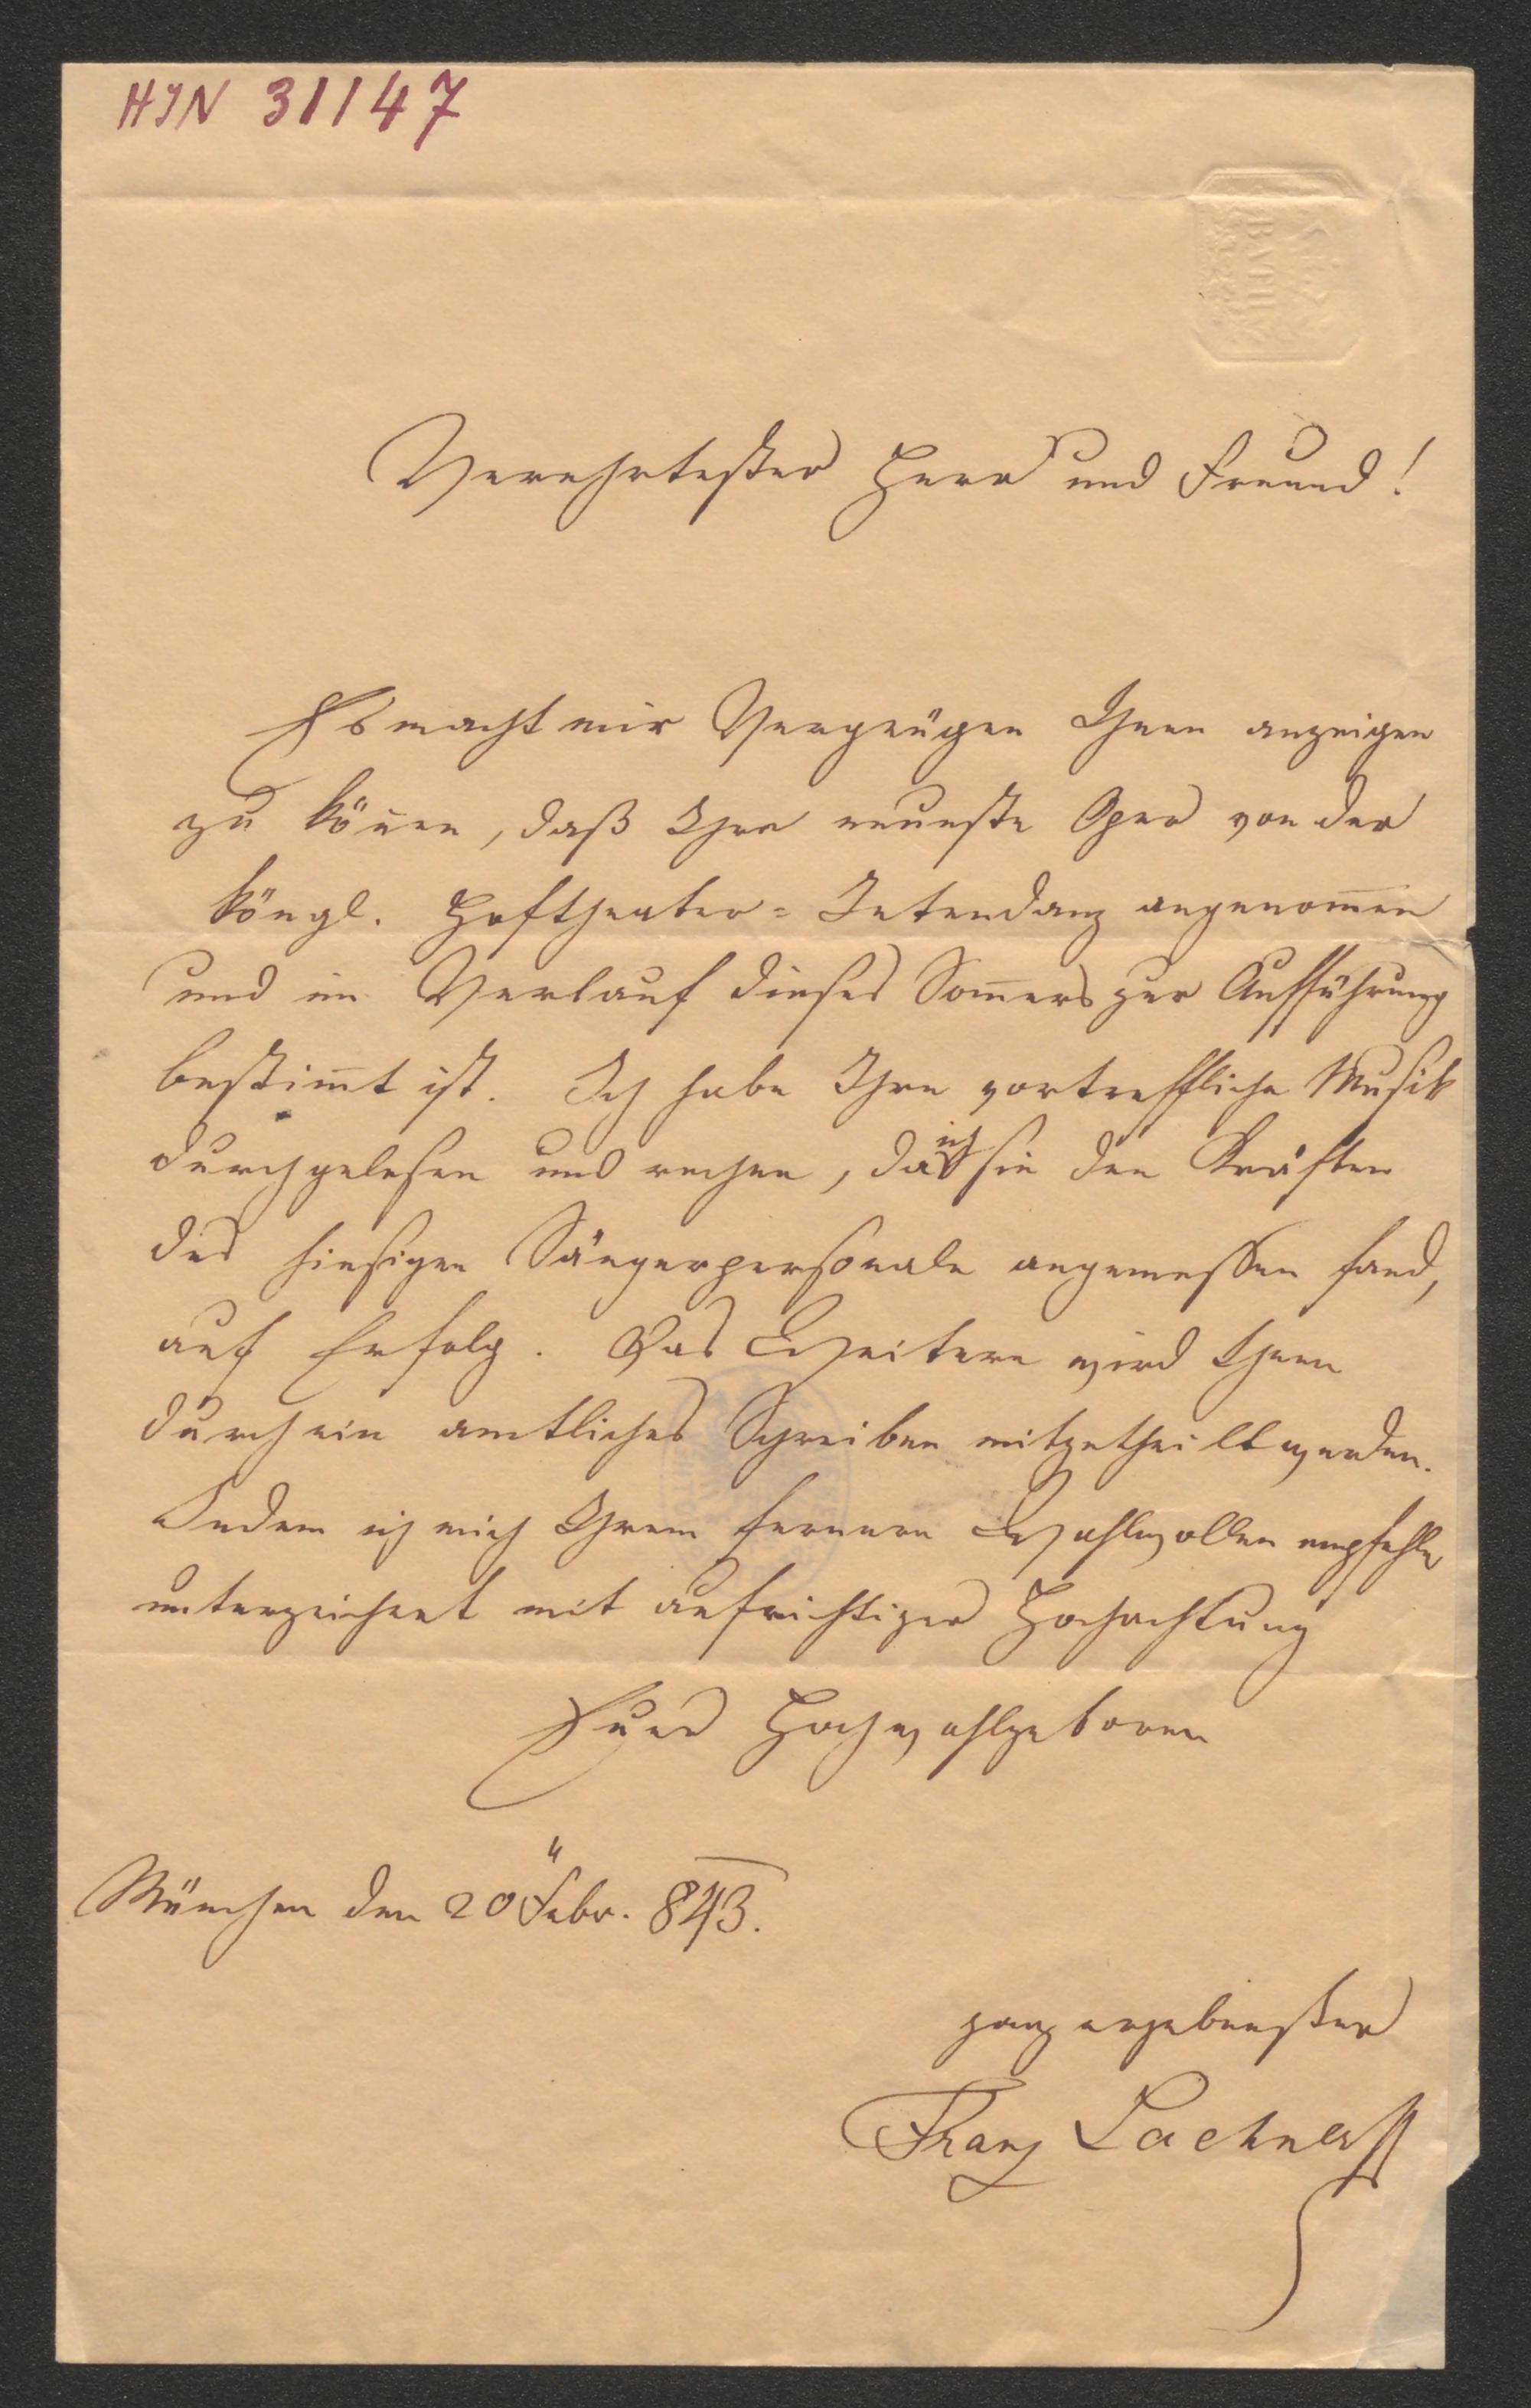 HIN 31147
BATH
Verehrtester Herr und Freund!
Es macht mir Vergnügen Ihnen anzeigen
zu kön̄en, daß Ihre neueste Oper von der
köngl. Hoftheater=Intendanz angenom̄en
und im Verlauf dieses Som̄ers zur Aufführung
bestim̄t ist. Ich habe Ihre vortreffliche Musik
durchgelesen und rechne, da ich sie den Kräften
des hiesigen Sängerpersonale angemessen fand,
auf Erfolg. Das Weitere wird Ihnen
durch ein amtliches Schreiben mitgetheilt werden.
Indem ich mich Ihrem fernern Wohlwollen empfehle
unterzeichnet mit aufrichtiger Hochachtung
Euer Hochwohlgeboren
München den 20" Febr. 843.
ganz ergebenster
Franz Lachner